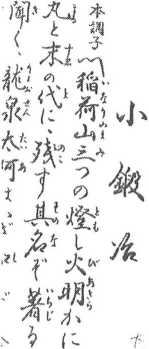 小鍛冶
本調子〽稲荷山三つの燈し火明かに
丸と末の代に残す其名ぞ著る
聞く龍泉太阿は